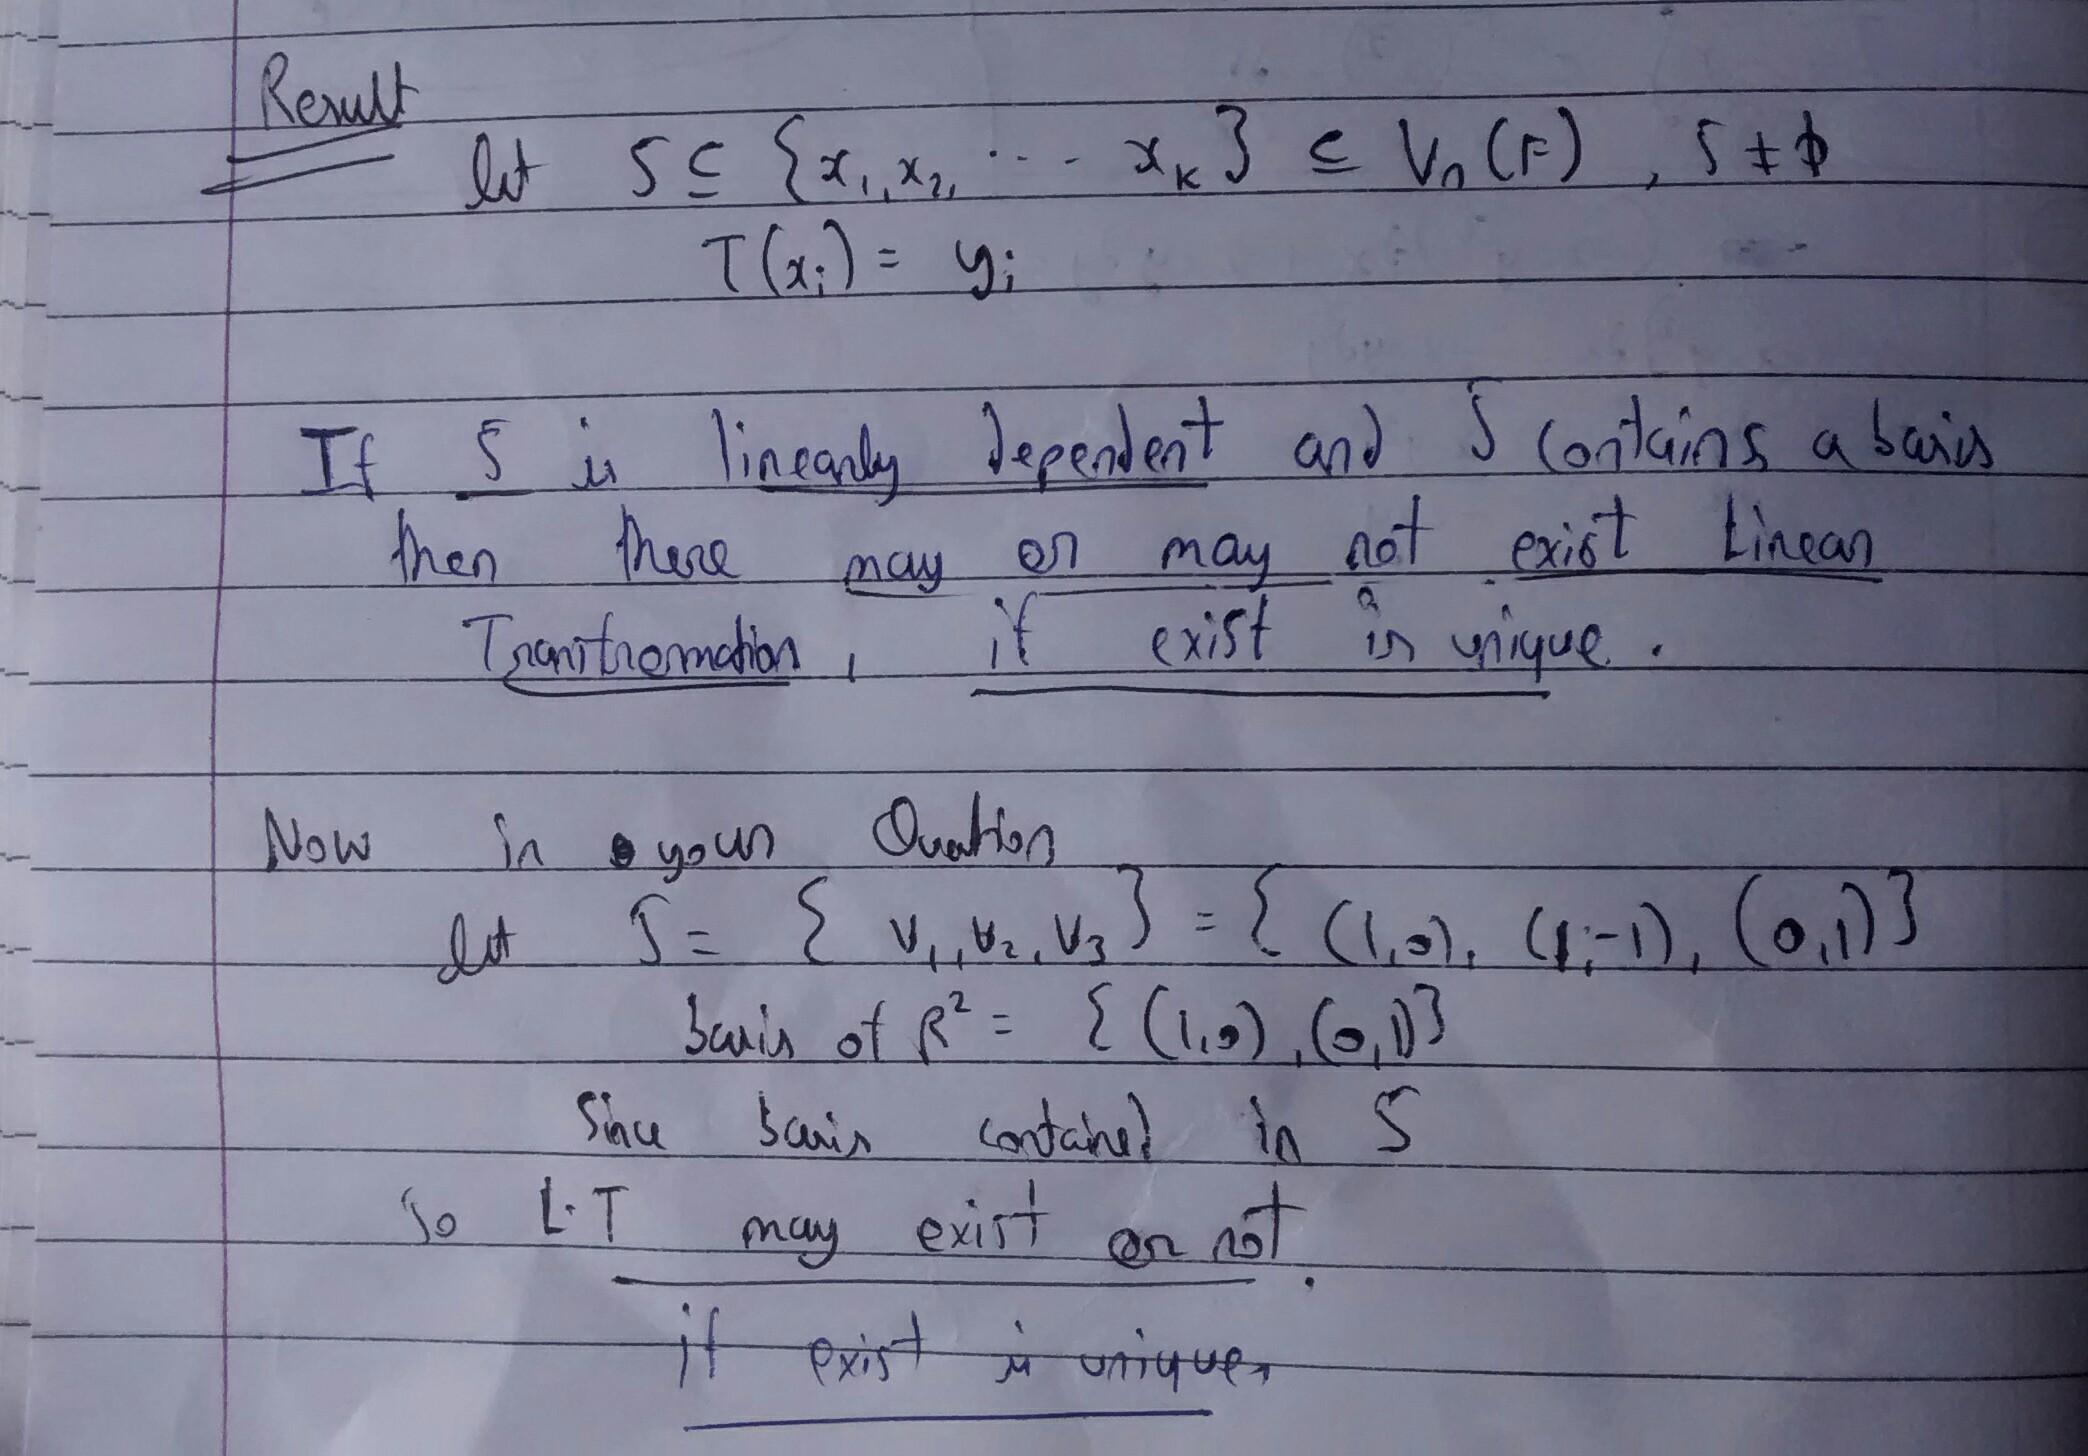 Result
let S ⊆ {x₁, x₂, ... xₖ} ⊆ Vₙ(F), S ≠ ϕ
T(xᵢ) = yᵢ
If S is linearly dependent and S contains a basis
then there may or may not exist Linear
Transtromation, if exist is unique.
Now in your Question
let S = {v₁, v₂, v₃} = {(1,0), (1,-1), (0,1)}
basis of R² = {(1,0), (0,1)}
Since basis contained in S
So L.T may exist or not.
if exist is unique.